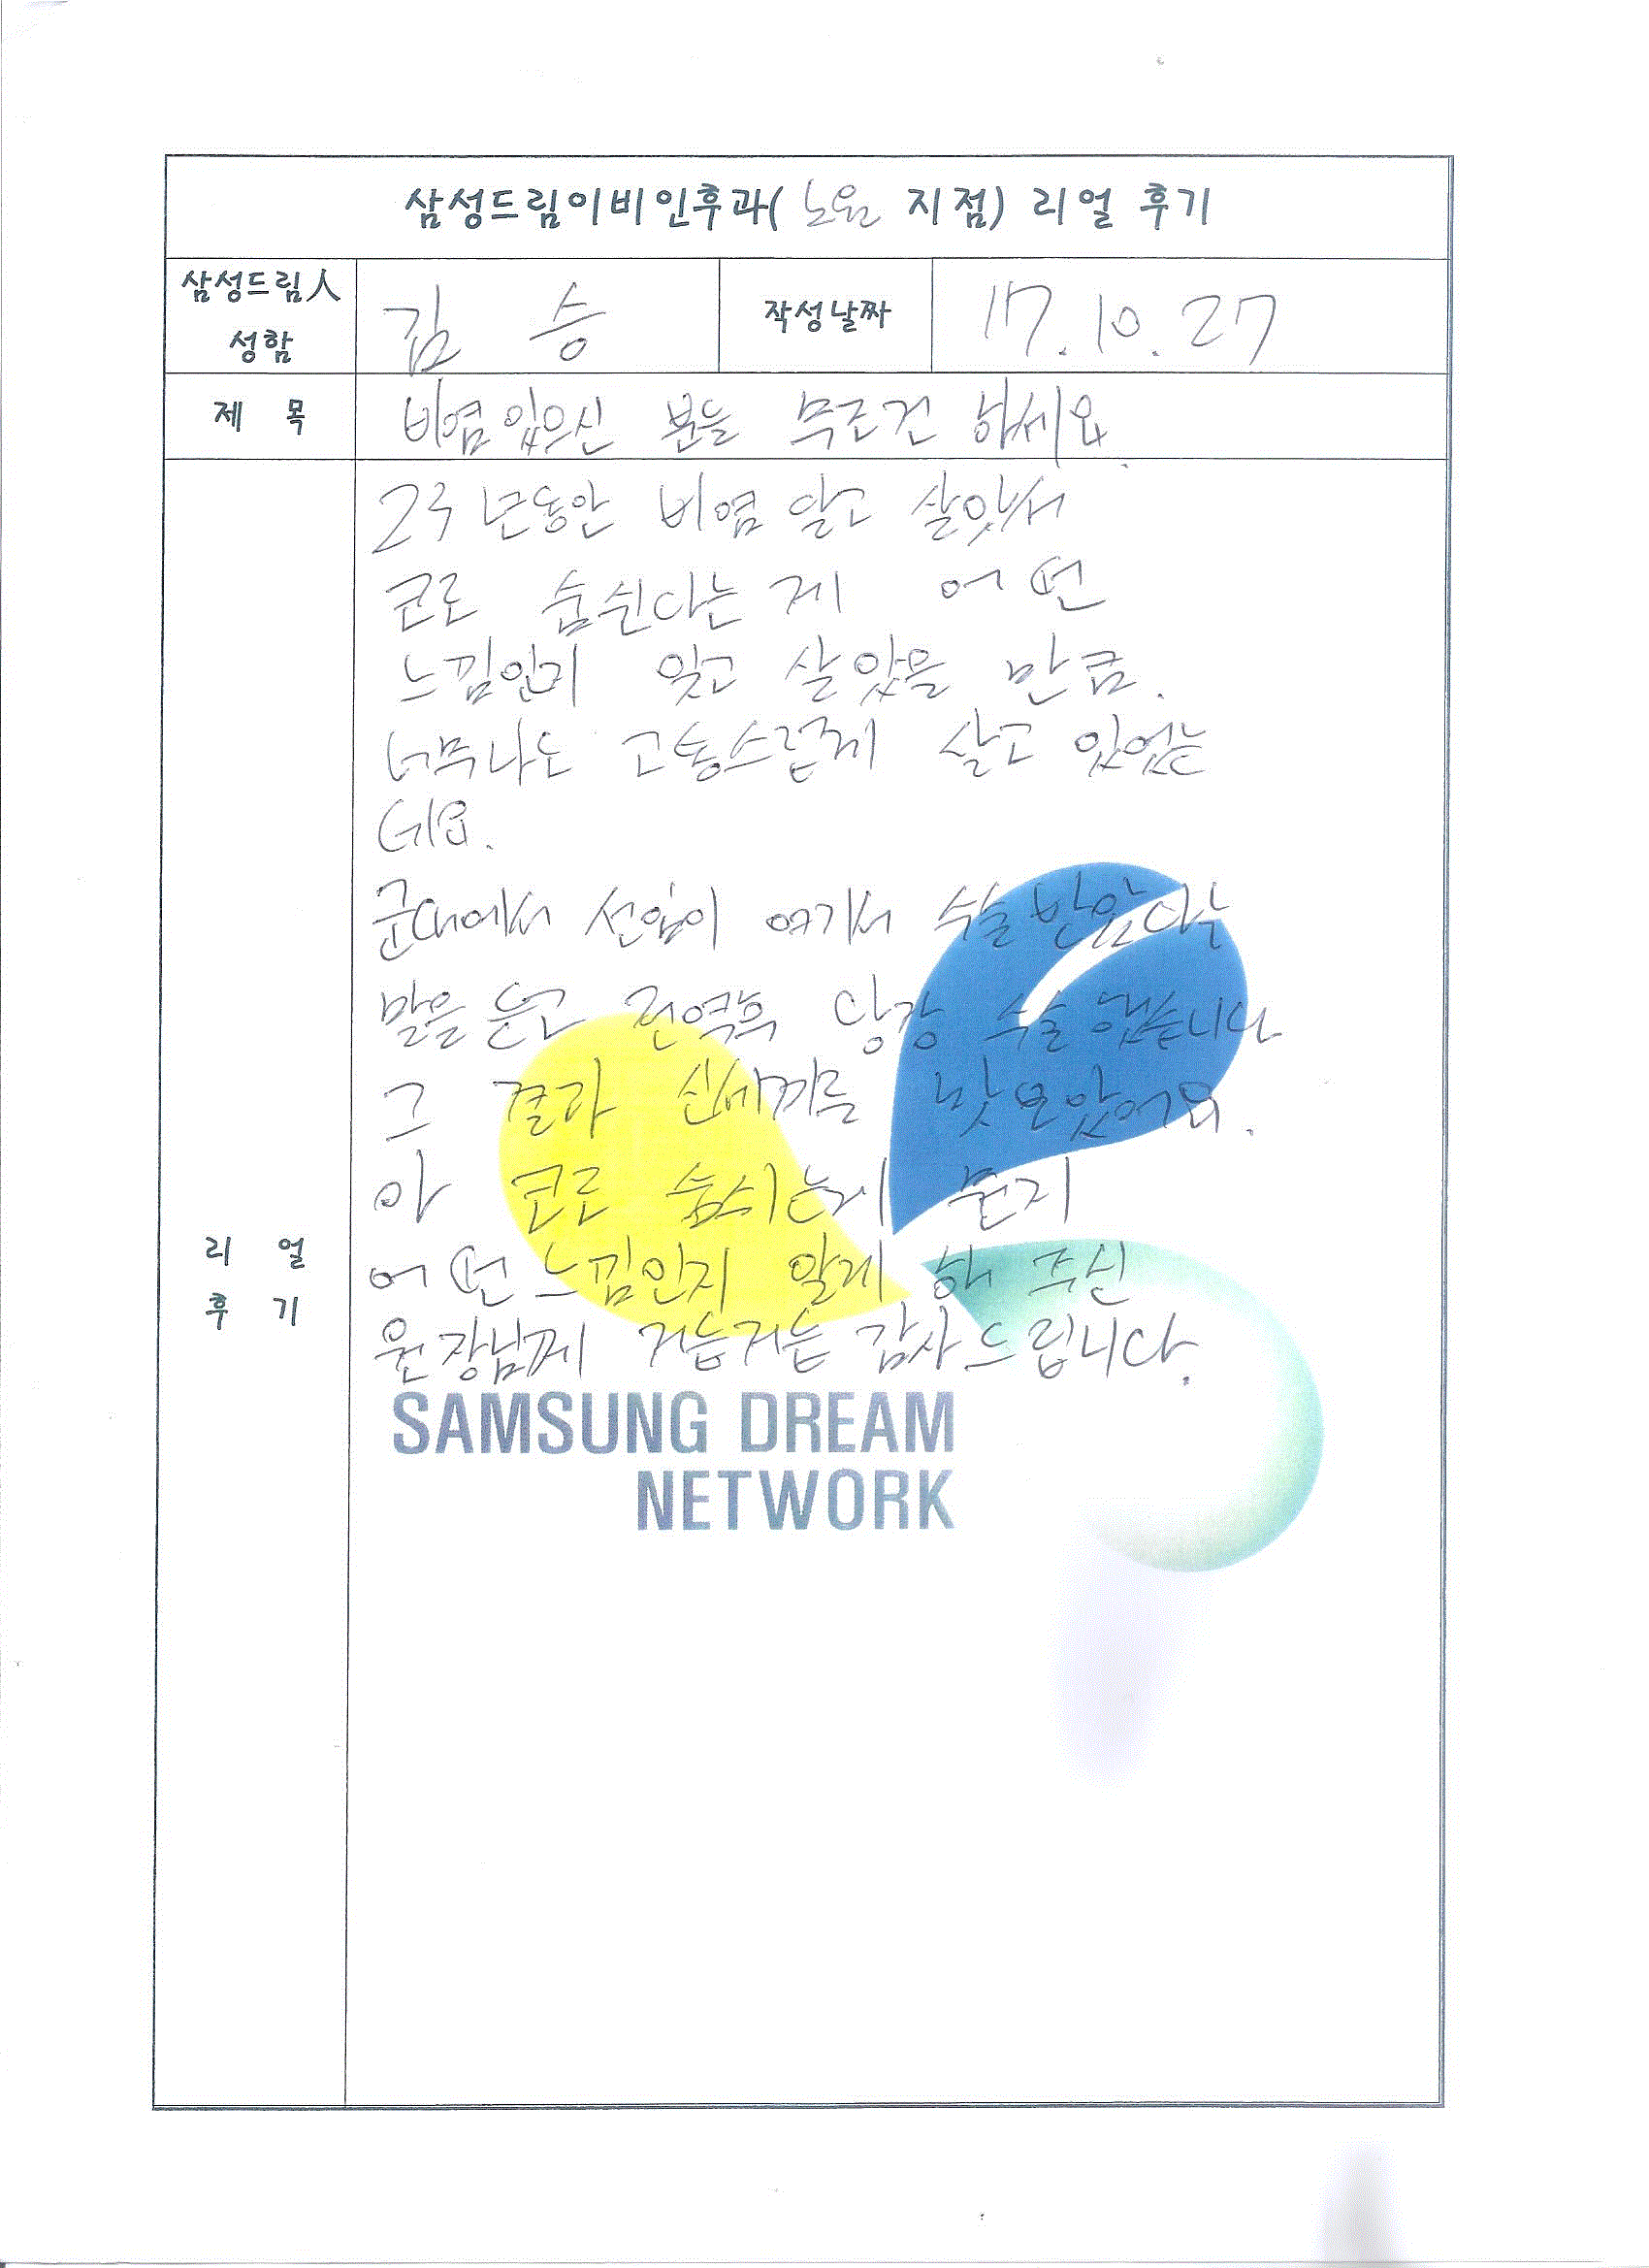 삼성드림이비인후과( 노원 지점) 리얼 후기
삼성드림人 성함
김 승
작성날짜
17.10.27
제 목
비염있으신 분들 무조건 하세요.
리 얼 후 기
23년동안 비염 앓고 살았서
코로 숨쉰다는게 어떤
느낌인지 잊고 살았을 만큼.
너무나도 고통스럽게 살고 있었는
데요.
군대에서 선임이 여기서 수술받았다는
말을 듣고 전역후 당장 수술했습니다
그 결과 신세계를 맛보았어요.
아 코로 숨쉬는게 뭔지
어떤느낌인지 알게 해 주신
원장님께 거듭거듭 감사드립니다.
SAMSUNG DREAM
NETWORK